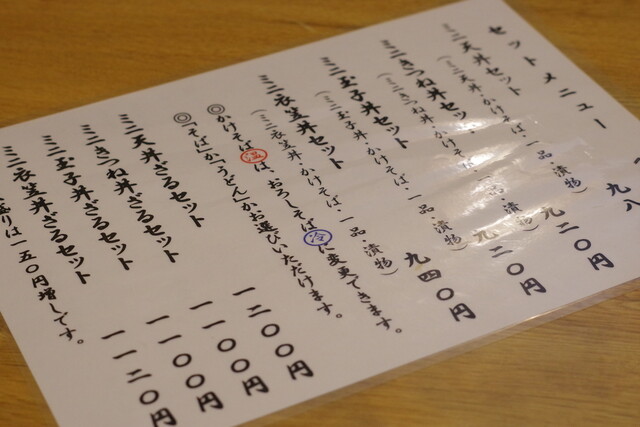 セットメニュー
ミニ天丼セット 九八
（ミニ天丼・かけそば・一品・漬物）
ミニきつね丼セット 九二〇円
（ミニきつね丼・かけそば・一品・漬物）
ミニ玉子丼セット 九二〇円
（ミニ玉子丼・かけそば・一品・漬物）
ミニ衣笠丼セット 九四〇円
（ミニ衣笠丼・かけそば・一品・漬物）
◎かけそば温は、おろしそば冷に変更できます。
◎「そば」か「うどん」かお選びいただけます。
ミニ天丼ざるセット 一二〇〇円
ミニきつね丼ざるセット 一一〇〇円
ミニ玉子丼ざるセット 一一〇〇円
ミニ衣笠丼ざるセット 一一二〇円
盛りは一五〇円増しです。